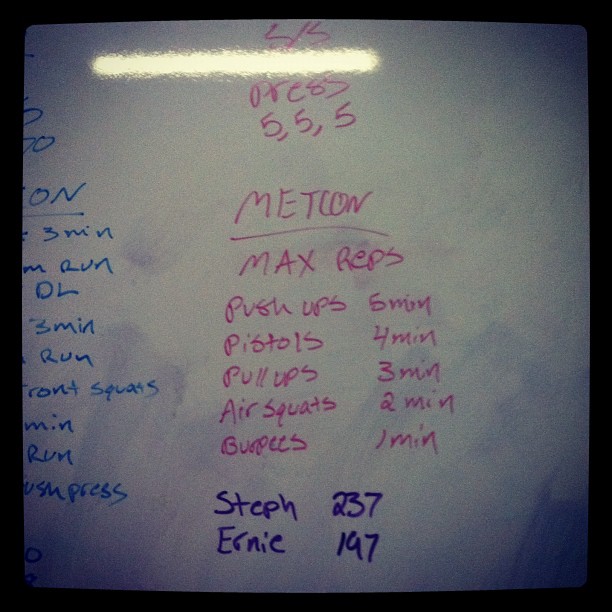 ON
3 min
m Run
DL
3 min
Run
ront squats
min
Run
ush press
S/S
press
5, 5, 5
METCON
MAX Reps
Push ups 5 min
Pistols 4 min
Pull ups 3 min
Air squats 2 min
Burpees 1 min
Steph 237
Ernie 197